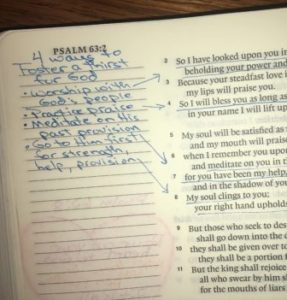 PSALM 63:2
4 ways to
Foster a thirst
for God
• worship with
God's people
• Practice praise
• Meditate on His
past provision
• Go to Him first
for strength,
help, provision
2 So I have looked upon you in
beholding your power and
3 Because your steadfast love i
my lips will praise you.
4 So I will bless you as long as
in your name I will lift up
5 My soul will be satisfied as
and my mouth will praise
6 when I remember you upon
and meditate on you in th
7 for you have been my help,
and in the shadow of you
8 My soul clings to you;
your right hand upholds
9 But those who seek to des
shall go down into the d
10 they shall be given over to
they shall be a portion f
11 But the king shall rejoice
all who swear by him sh
for the mouths of liars